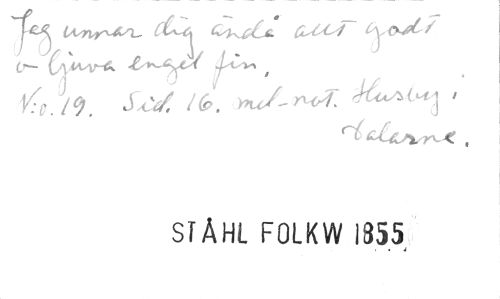 Jag unnar dig ändå allt godt
o ljuva engel fin,
N:o. 19. Sid. 16. mel-not. Husby i
Dalarne.
STÅHL FOLKW 1855